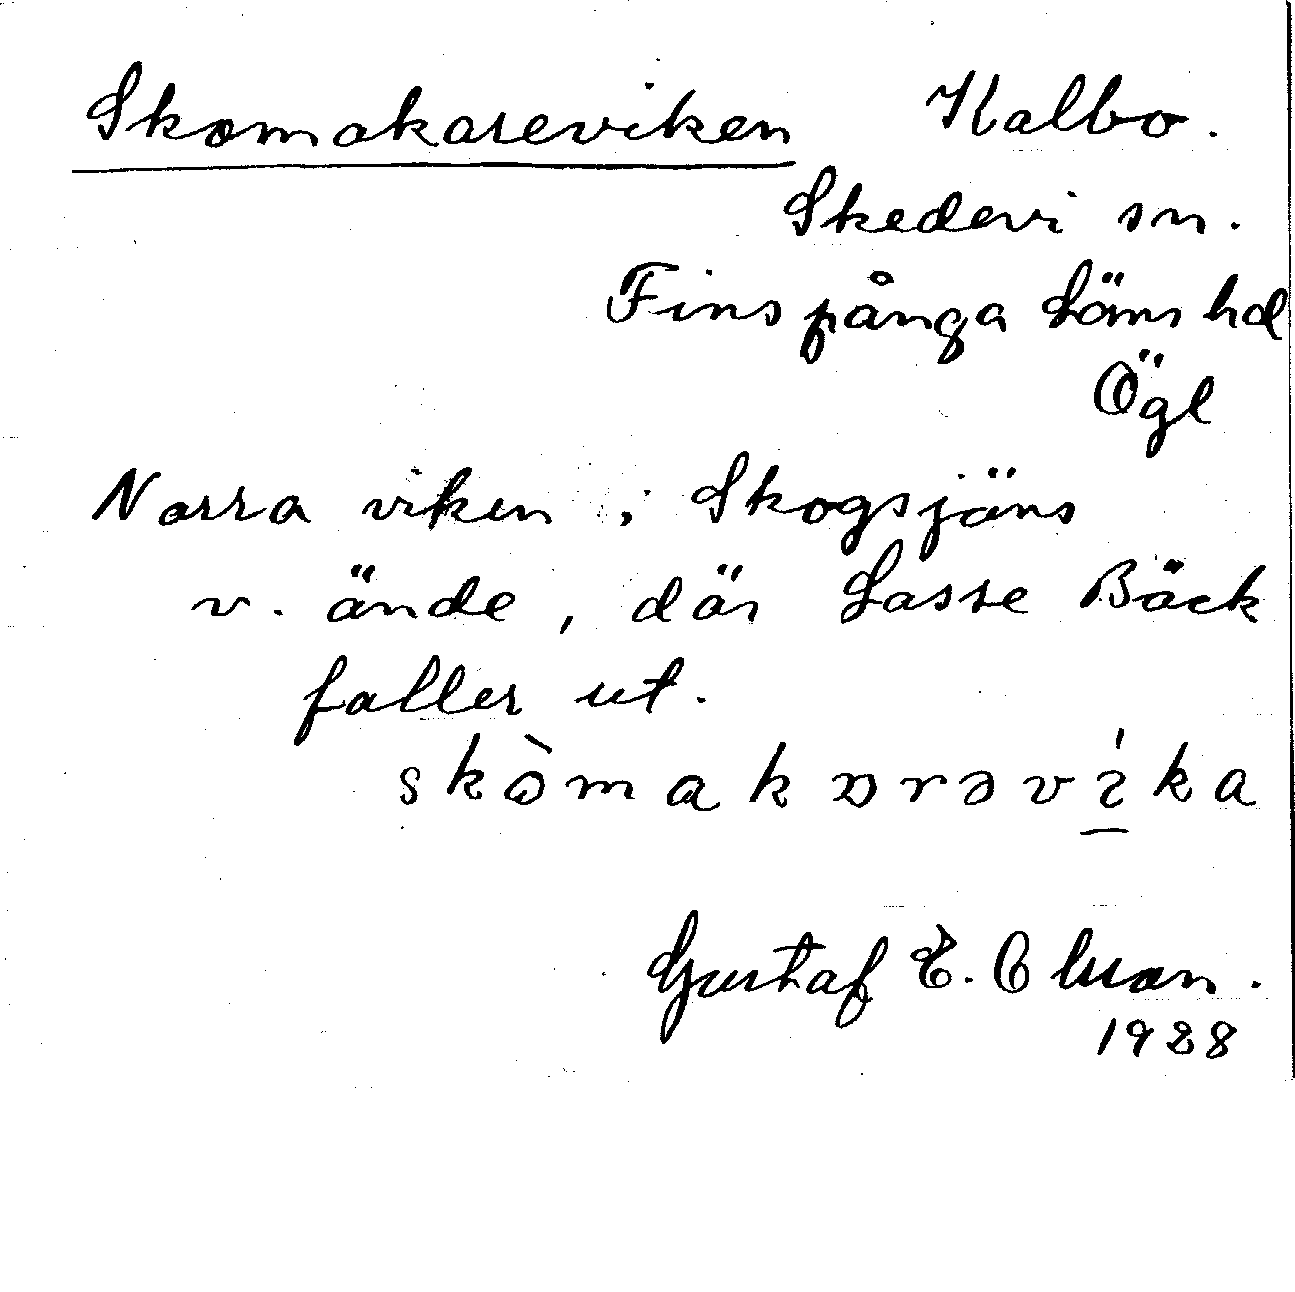 Skomakareviken Kalbo.
Skedevi sn.
Finspånga Läns hd
Ögl
Norra viken i Skogsjöns
v. ände, där Lasse Bäck
faller ut.
Gustaf E. Olsson.
1928